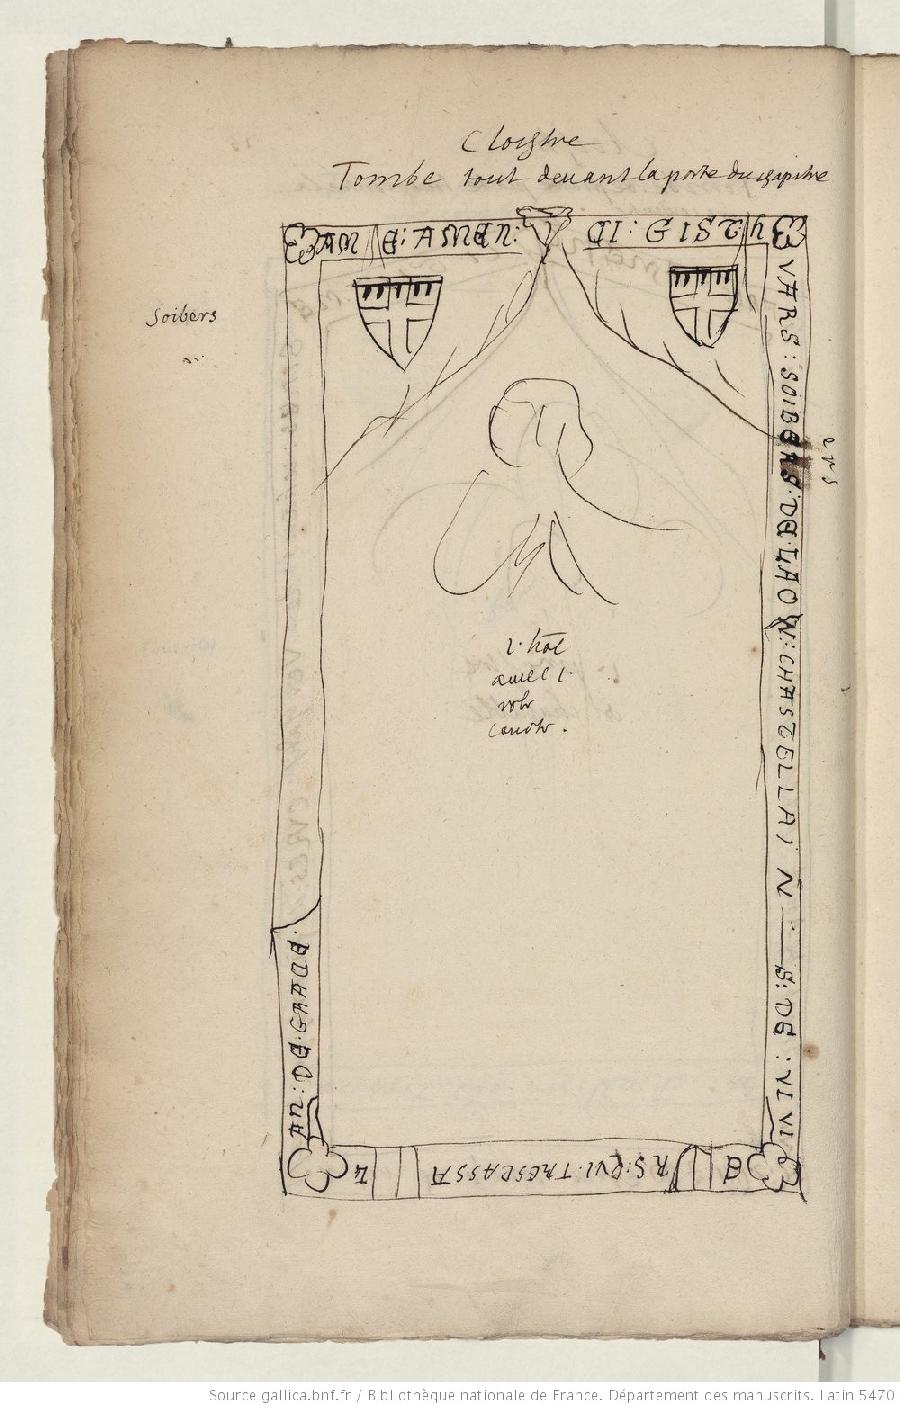 Cloistre
Tombe tout deuant la porte du chapitre
AME : AMEN :
CI : GIST : h
VARS : SOIBERS . DE . LAON : CHASTELLAIN
S : DE : VIVI
E
RS . QVI . TRESPASSA
L
AN : DE . GRACE .
Soibers
ers
1. hoe
Source gallica.bnf.fr / Bibliothèque nationale de France. Département des manuscrits. Latin 5470